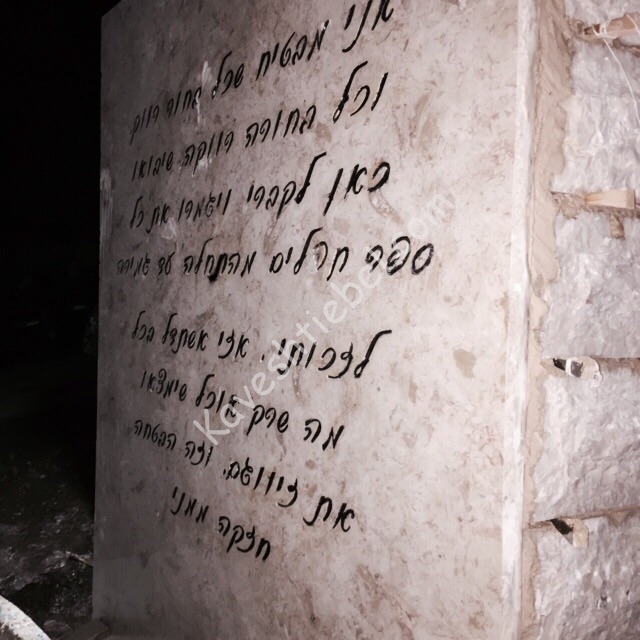 אני מבטיח שכל בחור רווק
וכל בחורה רווקה שיבואו
כאן לקברי ויאמרו את כל
ספר תהלים מהתחלה עד גמירא
לזכותי, אני אשתדל בכל
מה שרק אוכל שימצאו
את זיווגם. וזה הבטחה
חזקה ממני
Kaveshtiebel.com